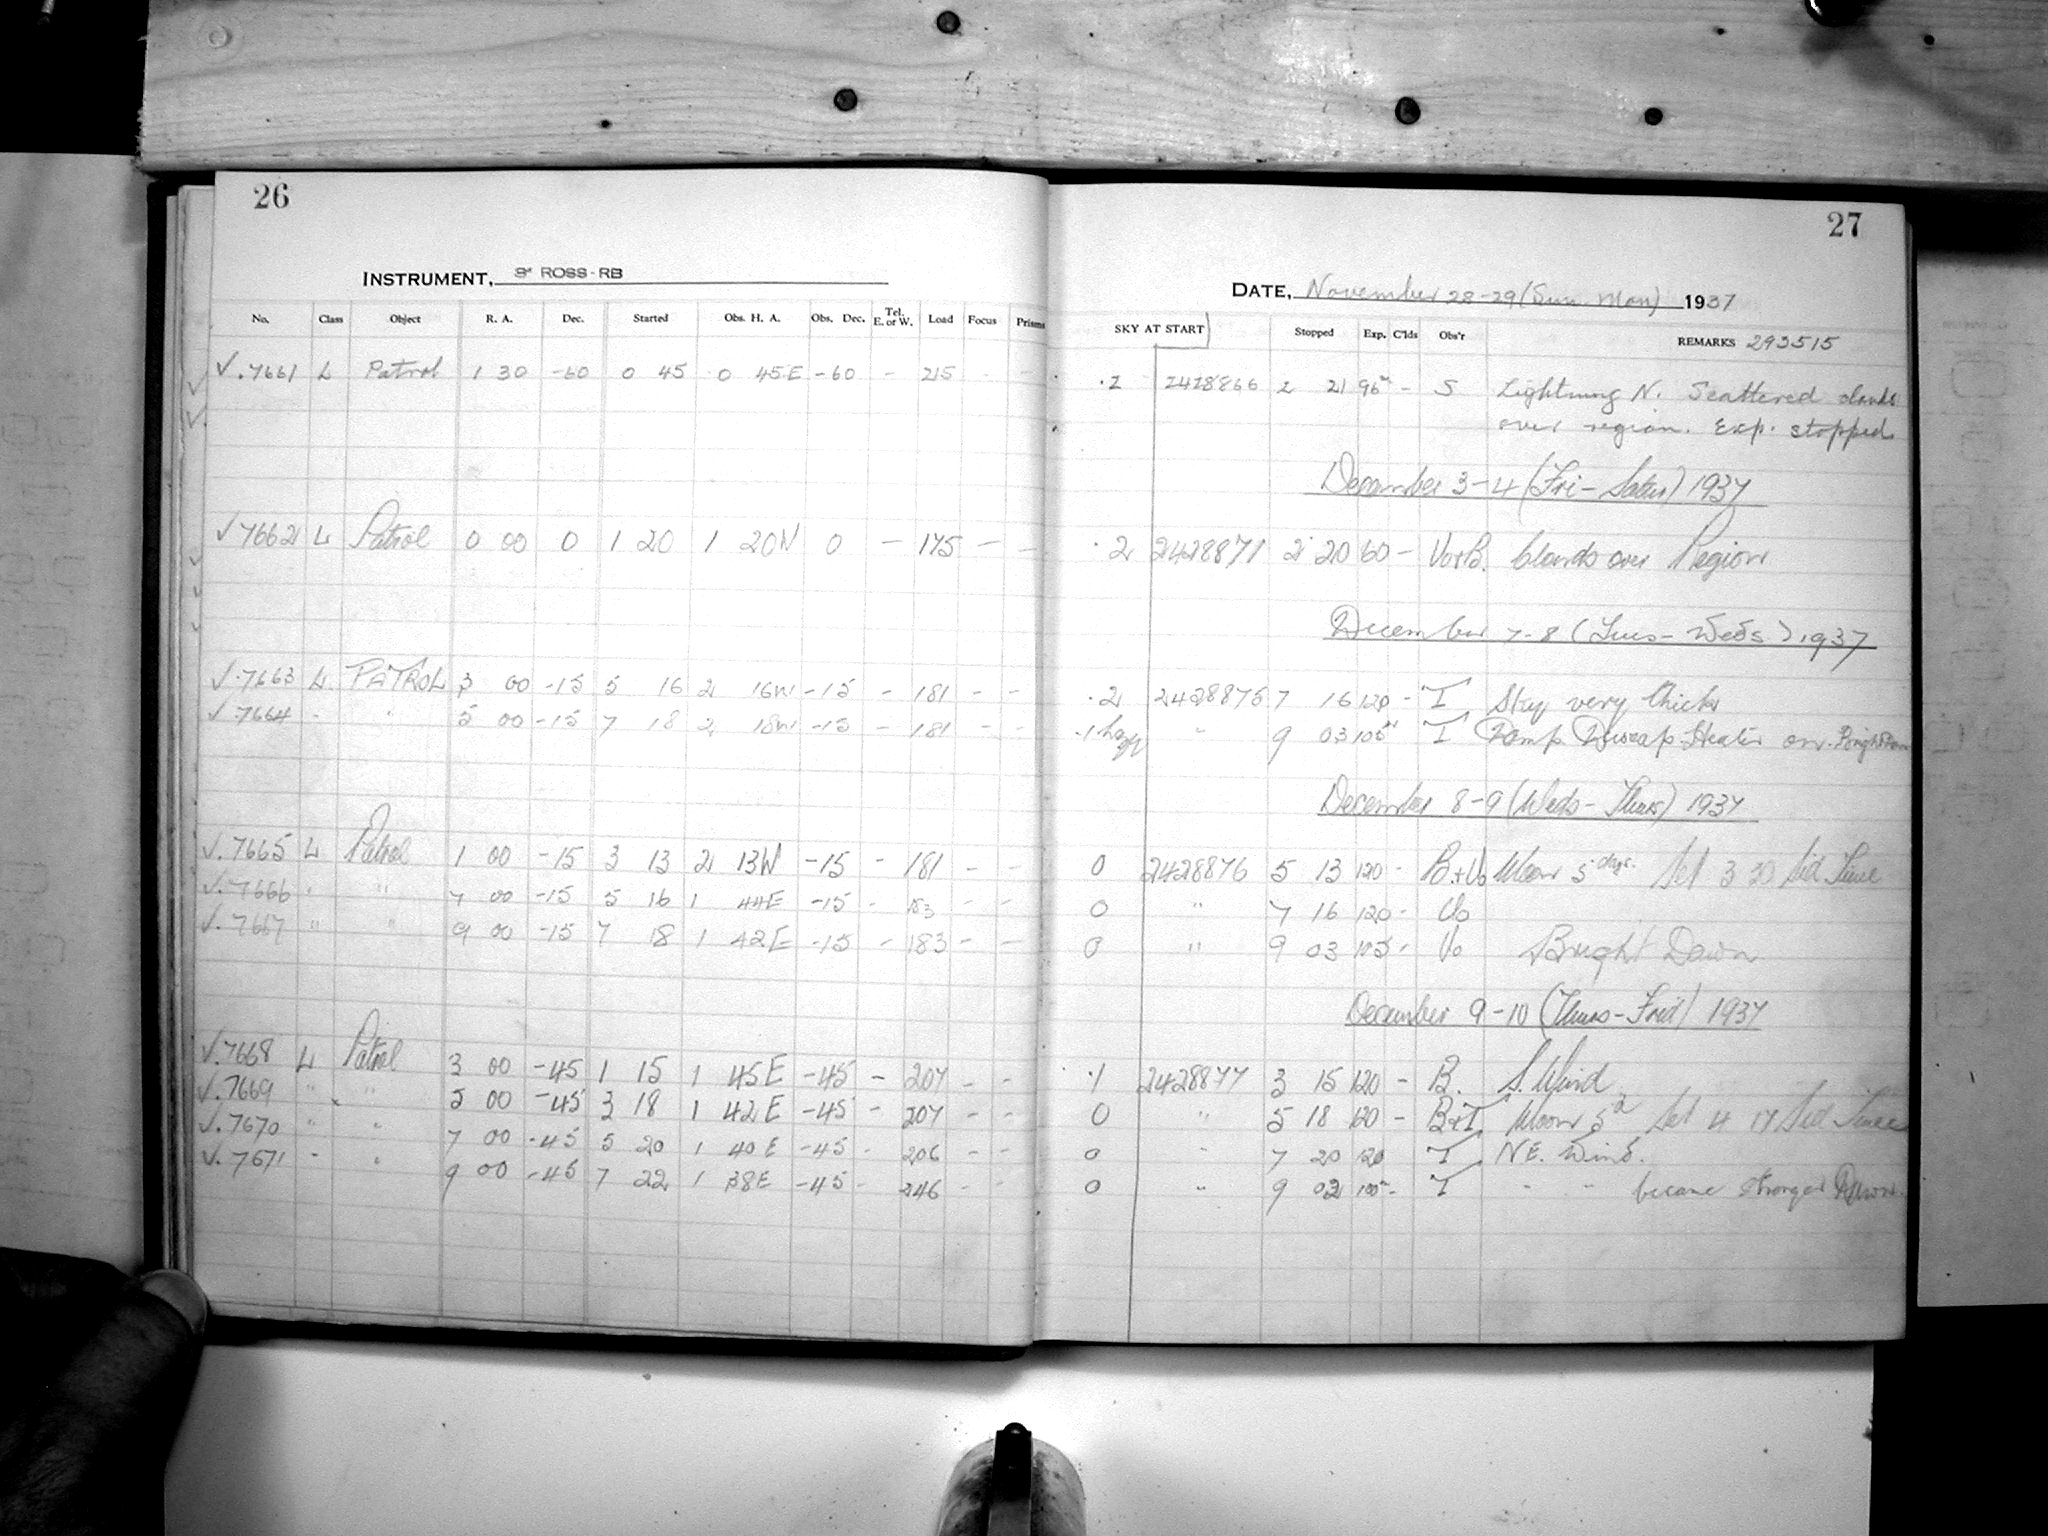 26
INSTRUMENT, 3" ROSS-RB
No. Class Object R. A. Dec. Started Obs. H. A. Obs. Dec. Tel. E. or W. Load Focus Prisms
√.7661 L Patrol 1 30 -60 0 45 0 45E -60 - 215
√7662 L Patrol 0 00 0 1 20 1 20W 0 - 175 - -
√.7663 L PATROL 3 00 -15 5 16 2 16W -15 - 181 - -
√.7664 " " 5 00 -15 7 18 2 18W -15 - 181 - -
√.7665 L Patrol 1 00 -15 3 13 2 13W -15 - 181 - -
√.7666 " " 7 00 -15 5 16 1 44E -15 - 183 - -
√.7667 " " 9 00 -15 7 18 1 42E -15 - 183 - -
√.7668 L Patrol 3 00 -45 1 15 1 45E -45 - 207 - -
√.7669 " " 5 00 -45 3 18 1 42E -45 - 207 - -
√.7670 " " 7 00 -45 5 20 1 40E -45 - 206 - -
√.7671 " " 9 00 -45 7 22 1 38E -45 - 246 - -
27
DATE, November 28-29 (Sun Mon) 1937
SKY AT START Stopped Exp. C'lds Obs'r REMARKS 293515
.2 2428866 2 21 96m - S Lightning N. Scattered clouds
over region. Exp. stopped
December 3-4 (Fri-Satur) 1937
.2 2428871 2 20 60 - Vo+B. Clouds over Region
December 7-8 (Tues-Weds) 1937
.2 2428875 7 16 120 - T Sky very thick
.1 " 9 03 105m T Damp Heater on. Bright
December 8-9 (Weds-Thurs) 1937
0 2428876 5 13 120 - B+Vo Moon 5 days. Set 3 30 Sid Time
0 " 7 16 120 - Vo
0 " 9 03 105 - Vo Bright Dawn
December 9-10 (Thurs-Frid) 1937
.1 2428877 3 15 120 - B. S. Wind
0 " 5 18 120 - B+T Moon 5d Set 4 17 Sid Time
0 " 7 20 120 T NE. Wind.
0 " 9 02 100 - T " " became stronger Dawn.